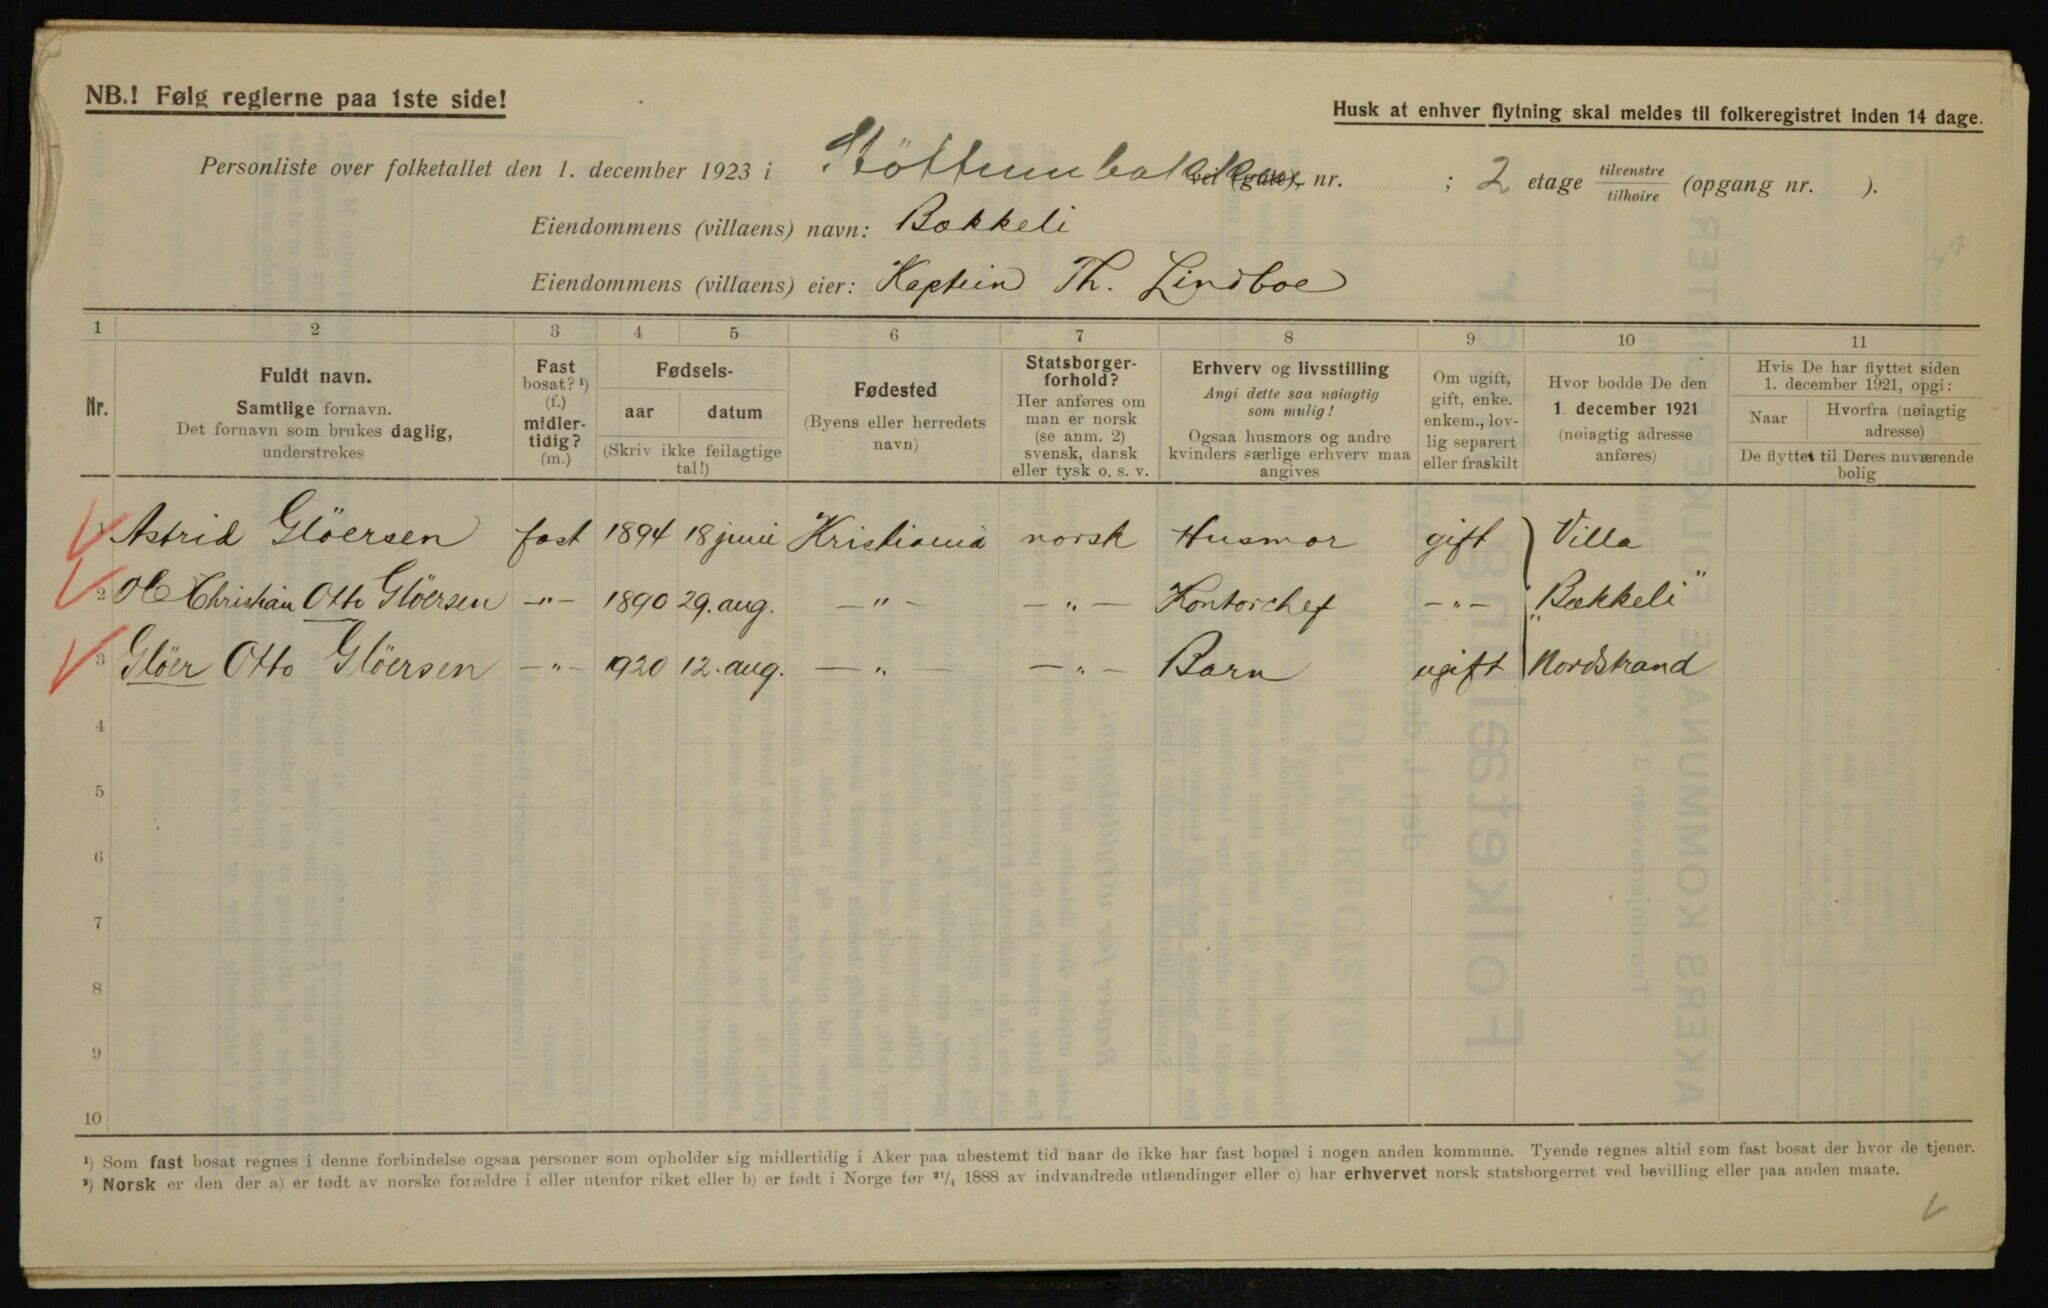 NB.! Følg reglerne paa 1ste side!
Husk at enhver flytning skal meldes til folkeregistret inden 14 dage.
Personliste over folketallet den 1. december 1923 i Støttumbakken vei (gate), nr. ; 2 etage tilvenstre tilhøire (opgang nr. ).
Eiendommens (villaens) navn: Bækkeli
Eiendommens (villaens) eier: Kaptein Th. Lindboe
1 2 3 4 5 6 7 8 9 10 11
Nr.
Fuldt navn.
Samtlige fornavn.
Det fornavn som brukes daglig,
understrekes
Fast
bosat? ¹)
(f.)
midler-
tidig?
(m.)
Fødsels-
aar datum
(Skriv ikke feilagtige
tal!)
Fødested
(Byens eller herredets
navn)
Statsborger-
forhold?
Her anføres om
man er norsk
(se anm. 2)
svensk, dansk
eller tysk o. s. v.
Erhverv og livsstilling
Angi dette saa nøiagtig
som mulig!
Ogsaa husmors og andre
kvinders særlige erhverv maa
angives
Om ugift,
gift, enke.
enkem., lov-
lig separert
eller fraskilt
Hvor bodde De den
1. december 1921
(nøiagtig adresse
anføres)
Hvis De har flyttet siden
1. december 1921, opgi:
Naar
Hvorfra (nøiagtig
adresse)
De flyttet til Deres nuværende
bolig
1 Astrid Glöersen fast 1894 18 juni Kristiania norsk Husmor gift Villa
2 Ole Christian Otto Glöersen —"— 1890 29. aug. —"— —"— Kontorchef —"— "Bækkeli"
3 Glöer Otto Glöersen —"— 1920 12. aug. —"— —"— Barn ugift Nordstrand
4
5
6
7
8
9
10
¹) Som fast bosat regnes i denne forbindelse ogsaa personer som opholder sig midlertidig i Aker paa ubestemt tid naar de ikke har fast bopæl i nogen anden kommune. Tyende regnes altid som fast bosat der hvor de tjener.
²) Norsk er den der a) er født av norske forældre i eller utenfor riket eller b) er født i Norge før 21/4 1888 av indvandrede utlændinger eller c) har erhvervet norsk statsborgerret ved bevilling eller paa anden maate.